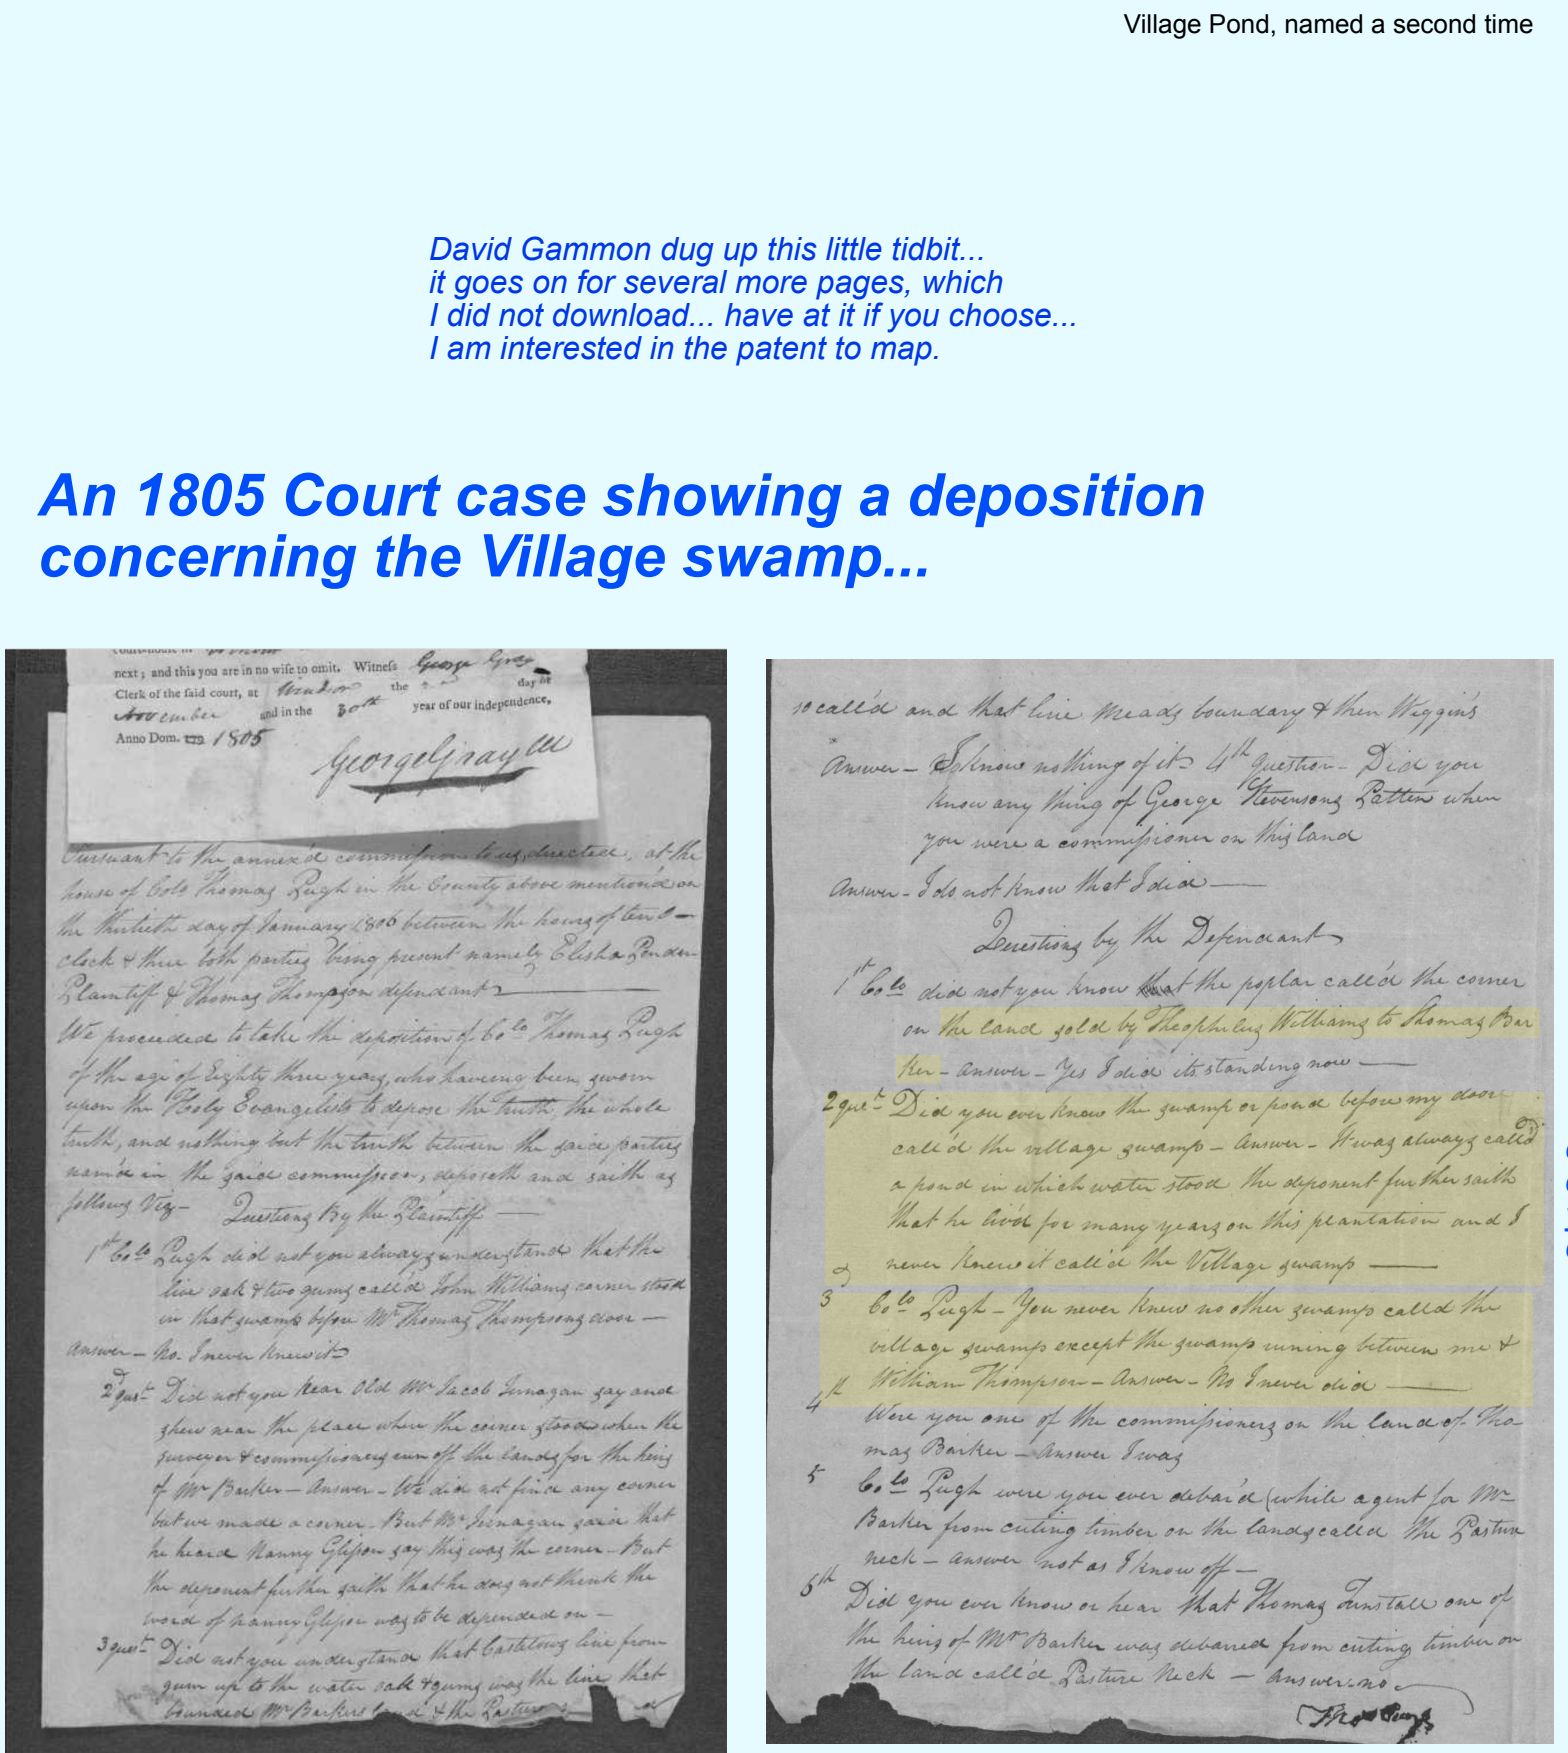 Village Pond, named a second time
David Gammon dug up this little tidbit...
it goes on for several more pages, which
I did not download... have at it if you choose...
I am interested in the patent to map.
An 1805 Court case showing a deposition
concerning the Village swamp...
next; and this you are in no wise to omit. Witness George Gray
Clerk of the said court, at Windsor the day of
November and in the 30th year of our independence,
Anno Dom. 179 1805
George Gray Clk
Pursuant to the annex'd commission to us, directed, at the
house of Colo Thomas Pugh in the County above mention'd on
the thirtieth day of January 1806 between the hours of ten O-
clock & three both parties being present namely Elisha Pender
Plaintiff & Thomas Thompson defendant
We proceeded to take the deposition of Colo Thomas Pugh
of the age of Eighty three years, who haveing been sworn
upon the Holy Evangelists to depose the truth the whole
truth, and nothing but the truth between the said parties
nam'd in the said commission, deposeth and saith as
follows Viz- Questions By the Plaintiff
1st Colo Pugh did not you always understand that the
live oak & two gums call'd John Williams corner stood
in that swamp before Mr Thomas Thompsons door
Answer - No. I never knew it
2d quest Did not you hear Old Mr Jacob Junagan say and
shew near the place where the corner stood when the
surveyer & commissioners run off the lands for the heirs
of Mr Barker - Answer - We did not find any corner
but we made a corner - But Mr Junagan said that
he heard Nanny Glisson say this was the corner - But
the deponent further saith that he does not think the
word of nanny Glisson was to be depended on -
3 quest Did not you understand that Castelows line from
gum up to the water oak & gums was the line that
bounded Mr Barkers land & the Pasture
so call'd and that line Meads boundary & then Wiggins
Answer - I know nothing of it 4th Question - Did you
know any thing of George Stevensons Patten when
you were a commissioner on this land
Answer - I do not know that I did
Questions by the Defendant
1st Colo did not you know the poplar call'd the corner
on the land sold by Theophilus Williams to Thomas Bar
ker - Answer - Yes I did its standing now
2 quest Did you ever know the swamp or pond before my door
call'd the village swamp - Answer - It was always call'd
a pond in which water stood the deponent further saith
that he liv'd for many years on this plantation and I
never knew it call'd the Village swamp
3 Colo Pugh - You never knew no other swamp called the
village swamp except the swamp runing between me &
William Thompson - Answer - No I never did
4th Were you one of the commissioners on the land of Tho-
mas Barker - Answer I was
5 Colo Pugh were you ever debar'd (while agent for Mr
Barker from cuting timber on the lands called the Pasture
neck - answer not as I know off -
6th Did you ever know or hear that Thomas Tunstall one of
the heirs of Mr Barker was debarred from cuting timber on
the land call'd Pasture Neck - Answer - no
Thos Pugh